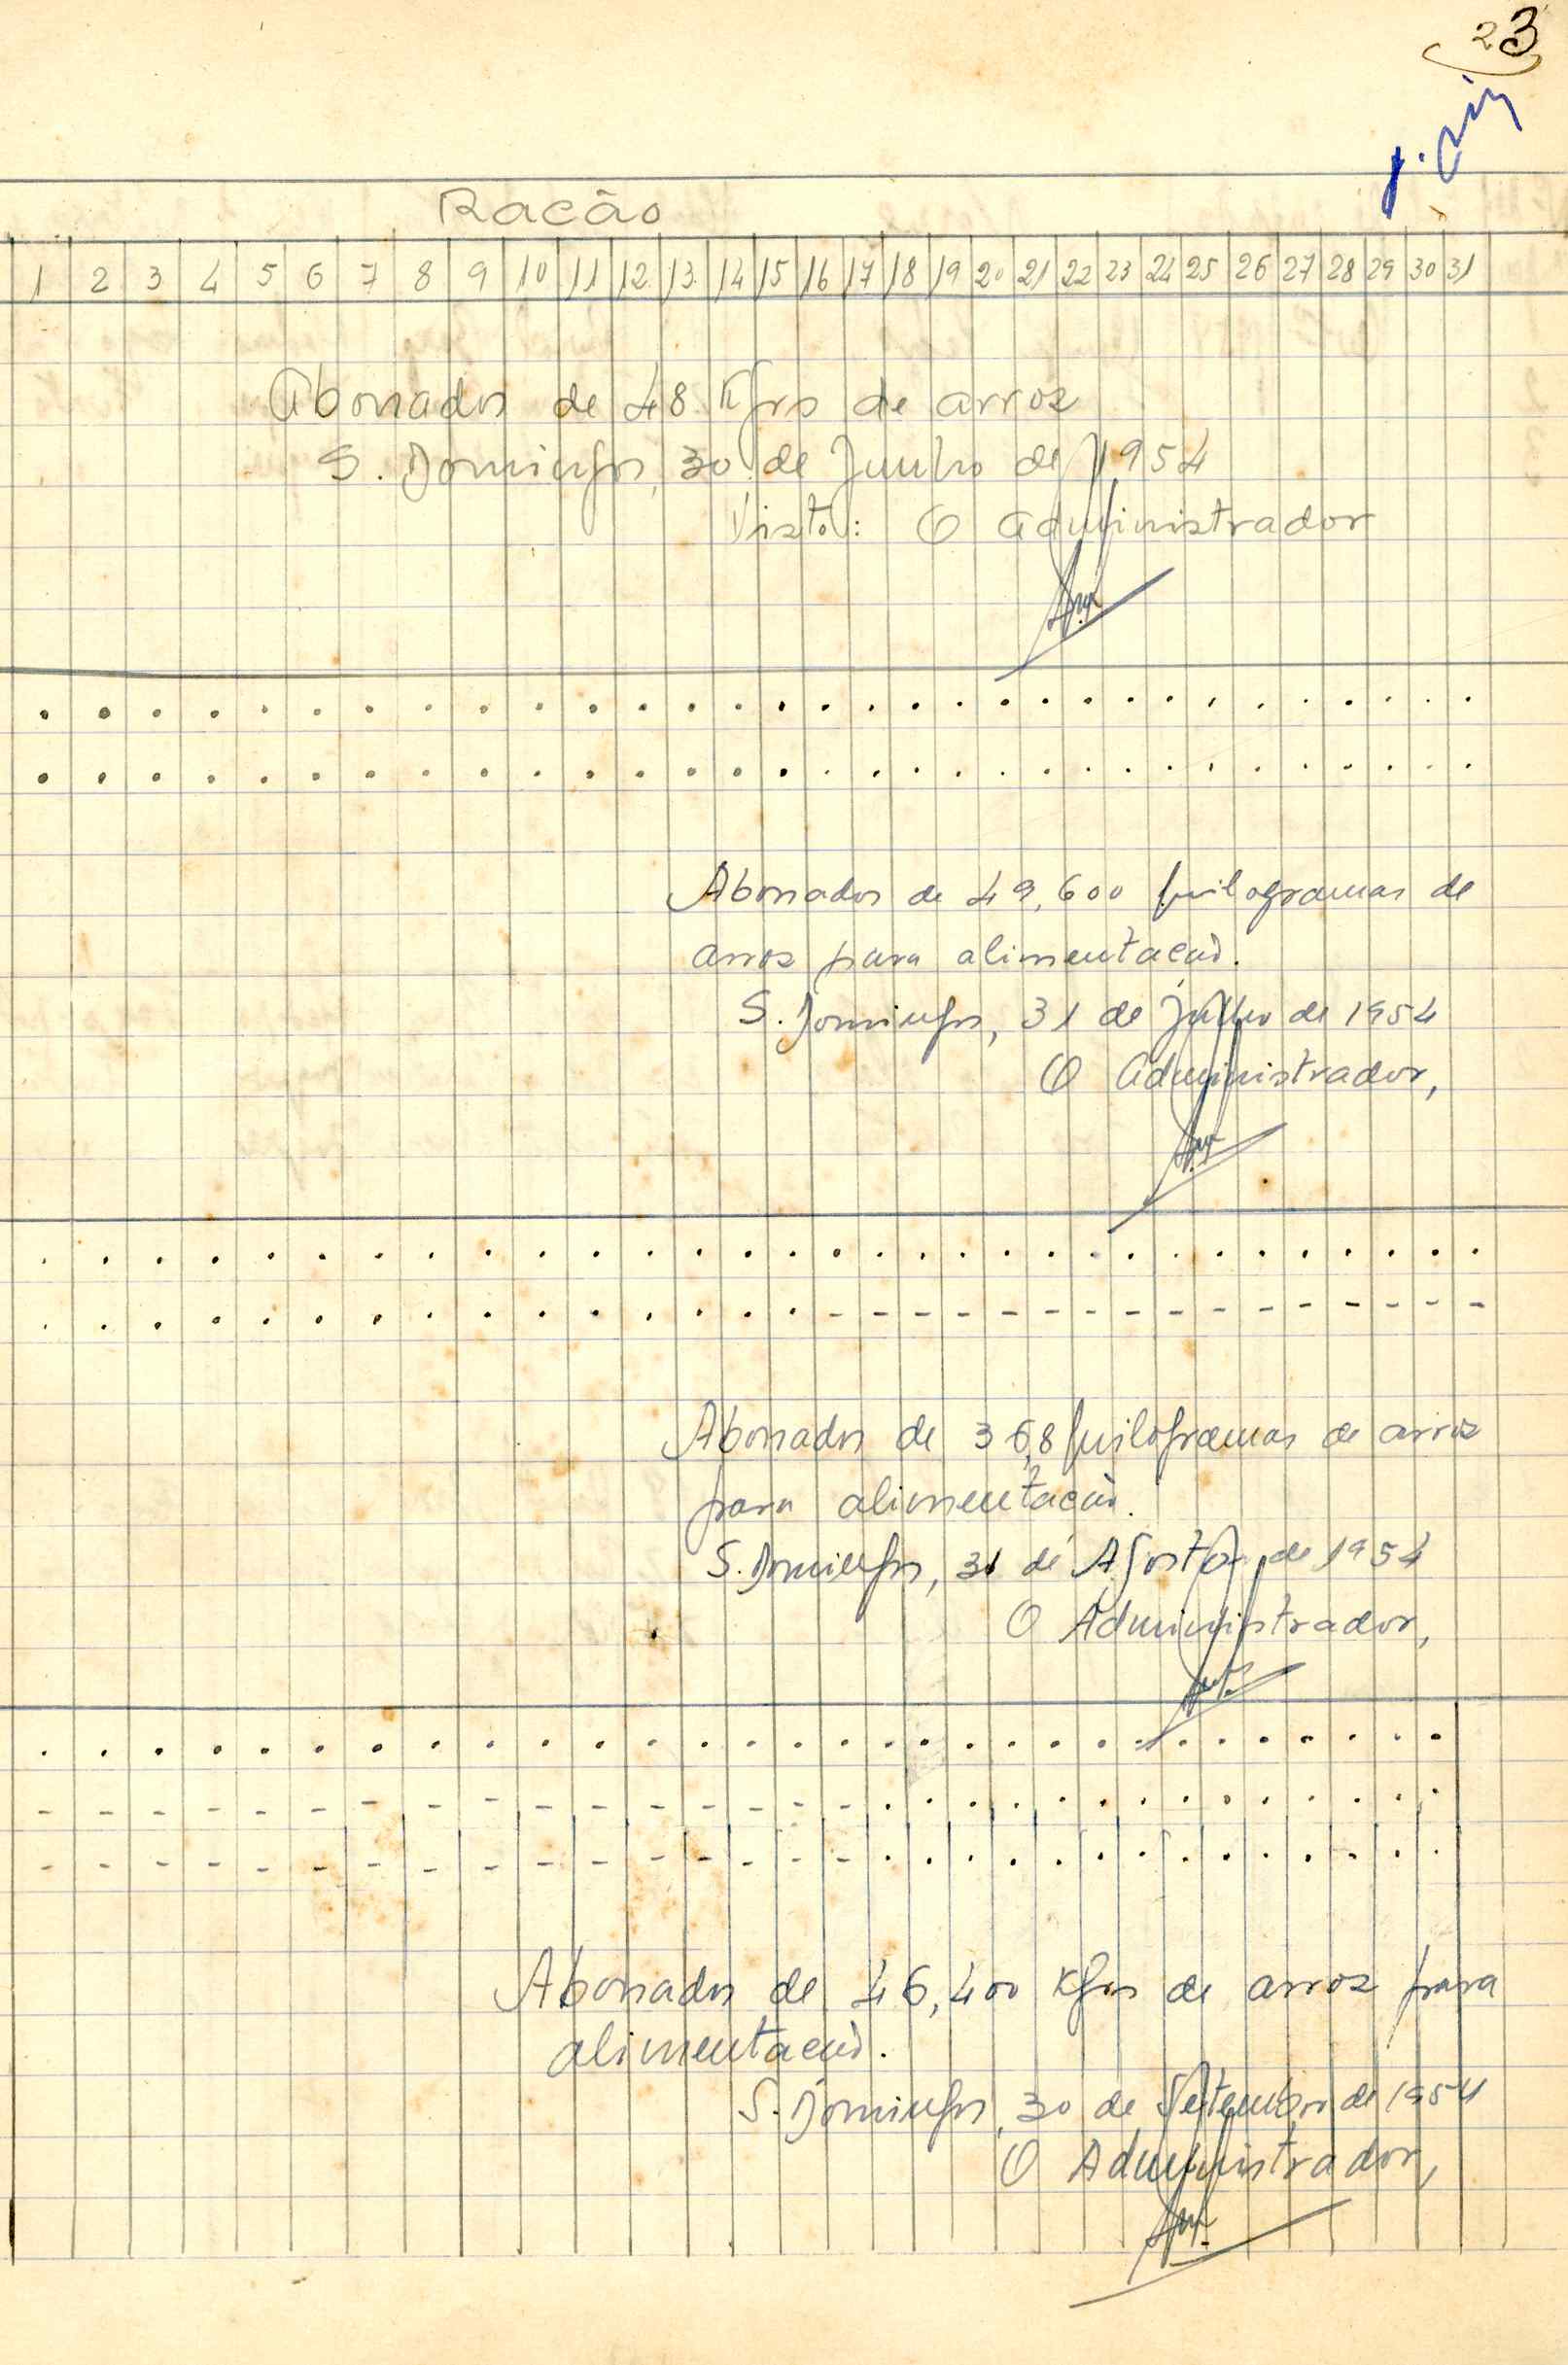 23
Racão
1 2 3 4 5 6 7 8 9 10 11 12. 13. 14 15 16 17 18 19 20 21 22 23 24 25 26 27 28 29 30 31
Abonados de 48 Kgrs de arroz
S. Domingos, 30 de Junho de 1954
Visto: O Administrador
Abonados de 49,600 quilogramas de
arroz para alimentação.
S. Domingos, 31 de Julho de 1954
O Administrador,
Abonados de 36,8 quilogramas de arroz
para alimentação.
S. Domingos, 31 de Agosto de 1954
O Administrador,
Abonados de 46,400 Kgrs de arroz para
alimentação.
S. Domingos, 30 de Setembro de 1954
O Administrador,